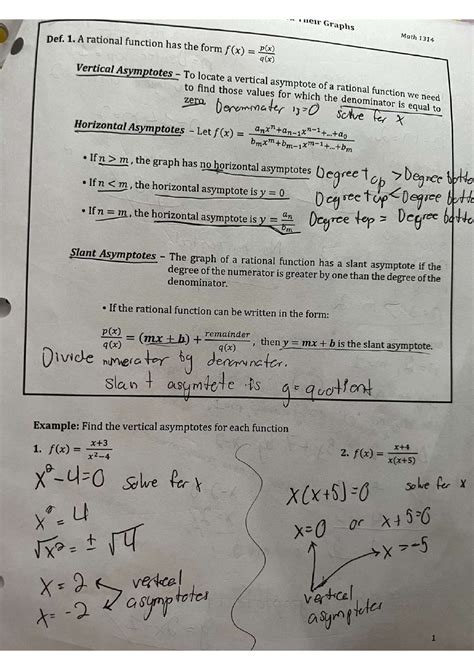 Their Graphs
Math 1314
Def. 1. A rational function has the form f(x) = p(x)/q(x)
Vertical Asymptotes – To locate a vertical asymptote of a rational function we need
to find those values for which the denominator is equal to
zero. Denominator is=0 solve for x
Horizontal Asymptotes – Let f(x) = (aₙxⁿ+aₙ₋₁xⁿ⁻¹+...+a₀)/(bₘxᵐ+bₘ₋₁xᵐ⁻¹+...+bₘ)
• If n > m, the graph has no horizontal asymptotes Degree top > Degree botto
• If n < m, the horizontal asymptote is y = 0 Degree top < Degree botto
• If n = m, the horizontal asymptote is y = aₙ/bₘ Degree top = Degree botto
Slant Asymptotes – The graph of a rational function has a slant asymptote if the
degree of the numerator is greater by one than the degree of the
denominator.
• If the rational function can be written in the form:
p(x)/q(x) = (mx + b) + remainder/q(x), then y = mx + b is the slant asymptote.
Divide numerator by denominator.
slant asymtete is y= quotient
Example: Find the vertical asymptotes for each function
1. f(x) = (x+3)/(x²−4)
x²-4=0 solve for x
x² = 4
√x² = ± √4
x = 2 vertical
x= -2 asymptotes
2. f(x) = (x+4)/(x(x+5))
solve for x
x(x+5)=0
x=0 or x+5=0
x=-5
vertical
asymptotes
1